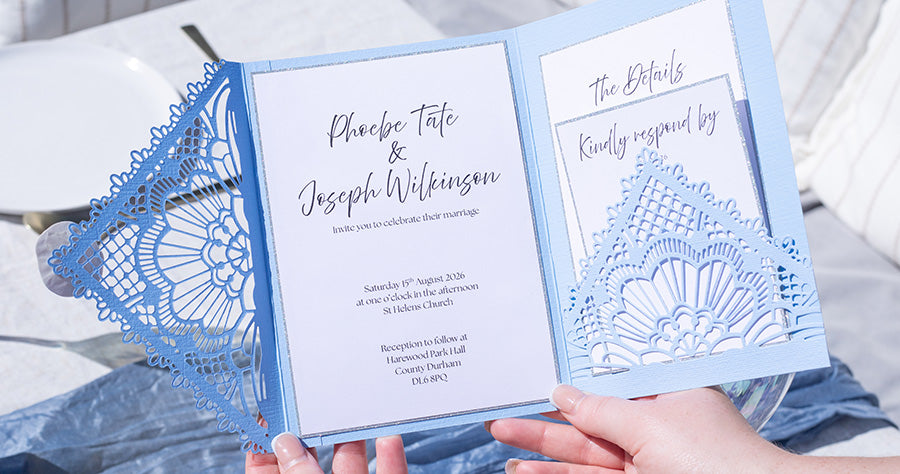 Phoebe Tate
&
Joseph Wilkinson
Invite you to celebrate their marriage
Saturday 15th August 2026
at one o'clock in the afternoon
St Helens Church
Reception to follow at
Harewood Park Hall
County Durham
DL6 8PQ
the Details
Kindly respond by